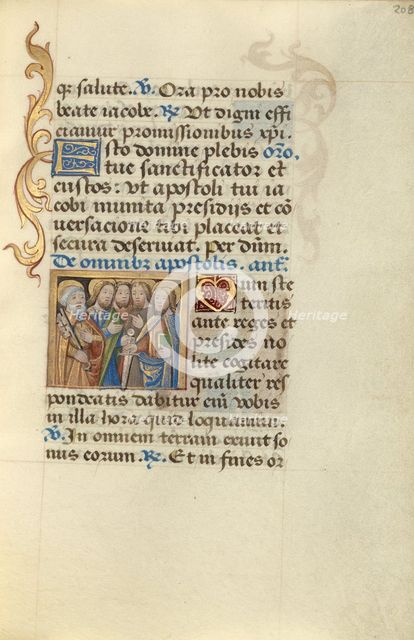 208
qz salute. V. Ora pro nobis
beate iacobe. R. Ut digni effi
ciamur promissionibus xpi.
Esto domine plebis oro.
tue sanctificator et
custos: ut apostoli tui ia
cobi munita presidijs et cō
uersacione tibi placeat et
secura deseruiat. per dūm.
De omnibꝰ apostolis. antꝭ
Dum ste
teritis
ante reges et
presides no
lite cogitare
qualiter res
pondeatis dabitur em̄ uobis
in illa hora quid loquamini.
V. In omnem terram exiuit so
nus eorum. R. Et in fines or
Heritage
Heritage
Heritage
Heritage